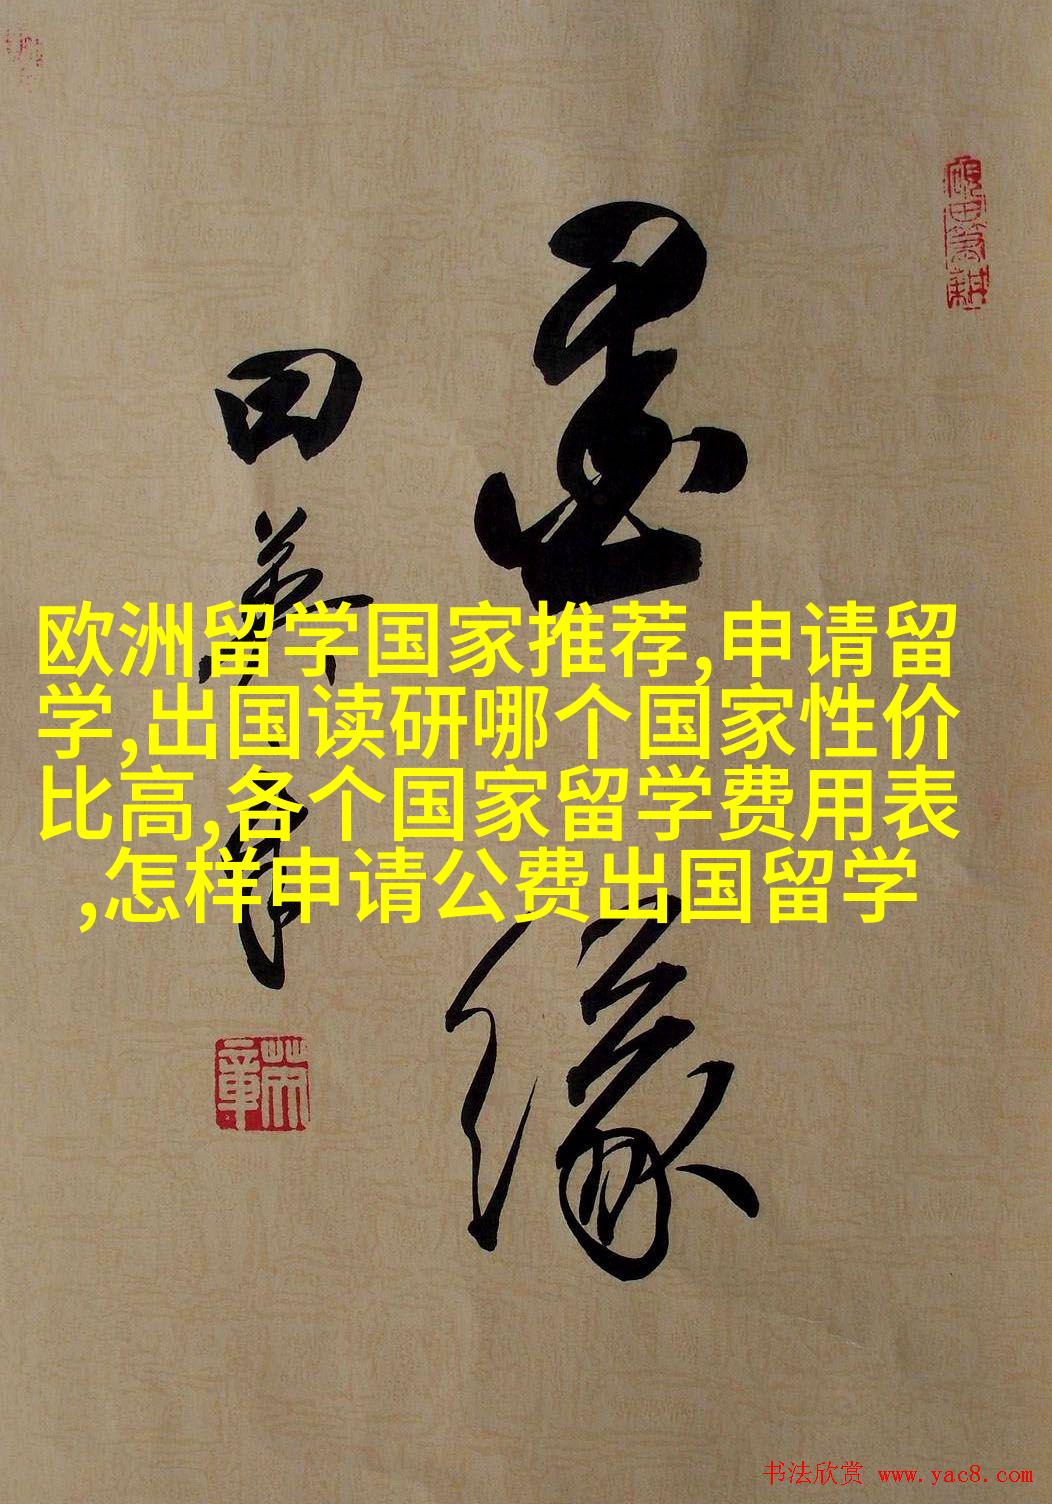 墨
缘
田英章
欧洲留学国家推荐,申请留
学,出国读研哪个国家性价
比高,各个国家留学费用表
,怎样申请公费出国留学
书法欣赏 www.yac8.com